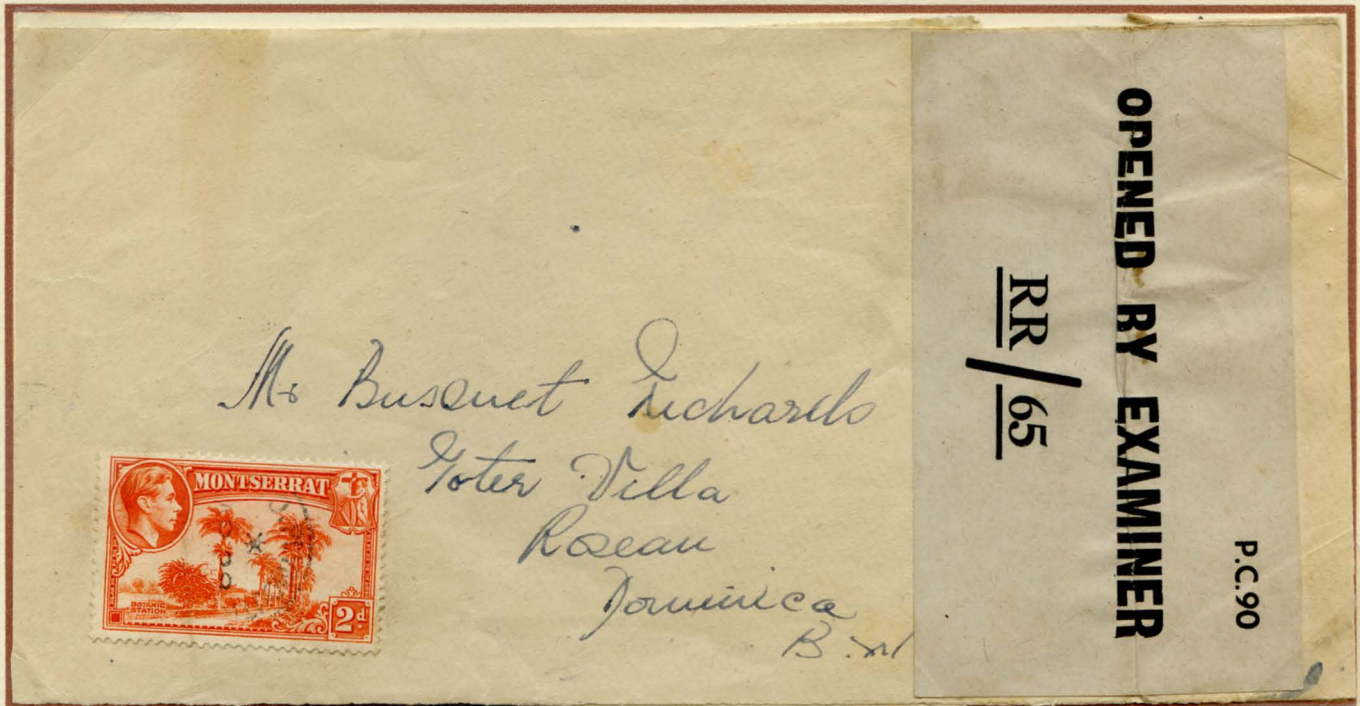 OPENED BY EXAMINER
P.C.90
RR/65
Mr Busquet Richards
Yoter Villa
Roseau
Dominica
B.W
MONTSERRAT
BOTANIC STATION
2d